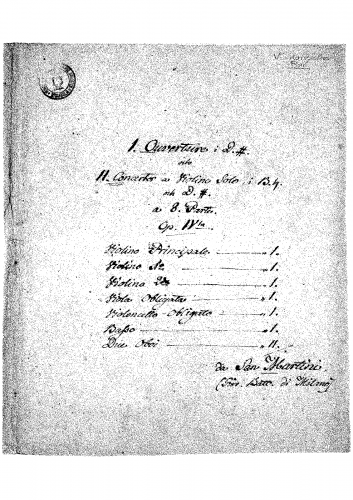 I. Ouverture i D.#.
och
II. Concerter a Violino Solo i B.♮
och D.#.
a 8. Parti.
Op. IVta
Violino Principale — 1.
Violino 1o — 1.
Violino 2do — 1.
Viola Obligata — 1.
Violoncello Obligato — 1.
Basso — 1.
Due Oboi — II.
da San Martini
di Milano)